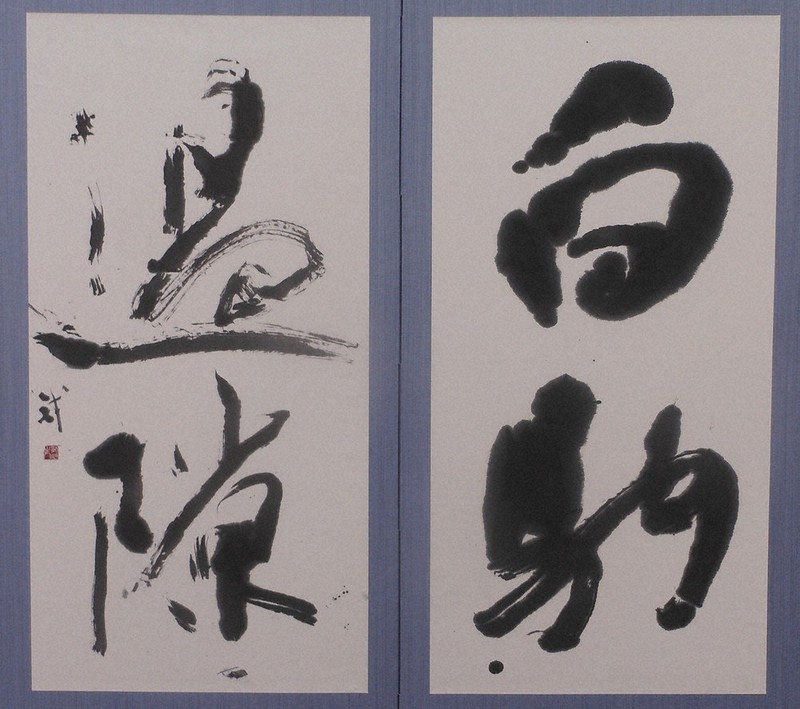 白駒
過隙